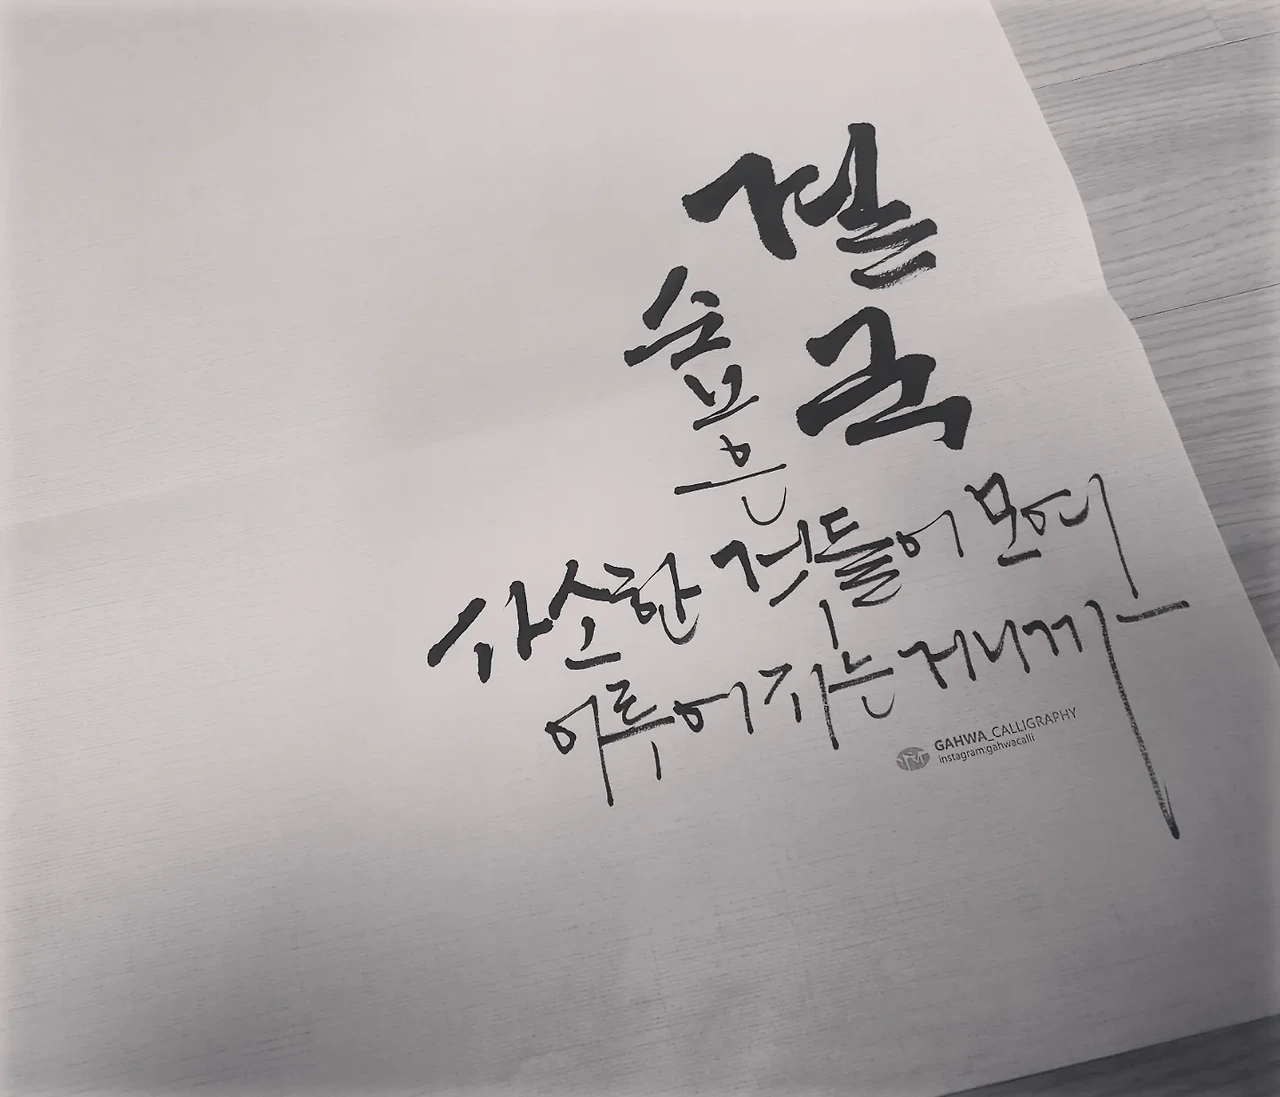 결국
숲은
사소한 것들이 모여
이루어지는 거니까
GAHWA_CALLIGRAPHY
instagram:gahwacalli